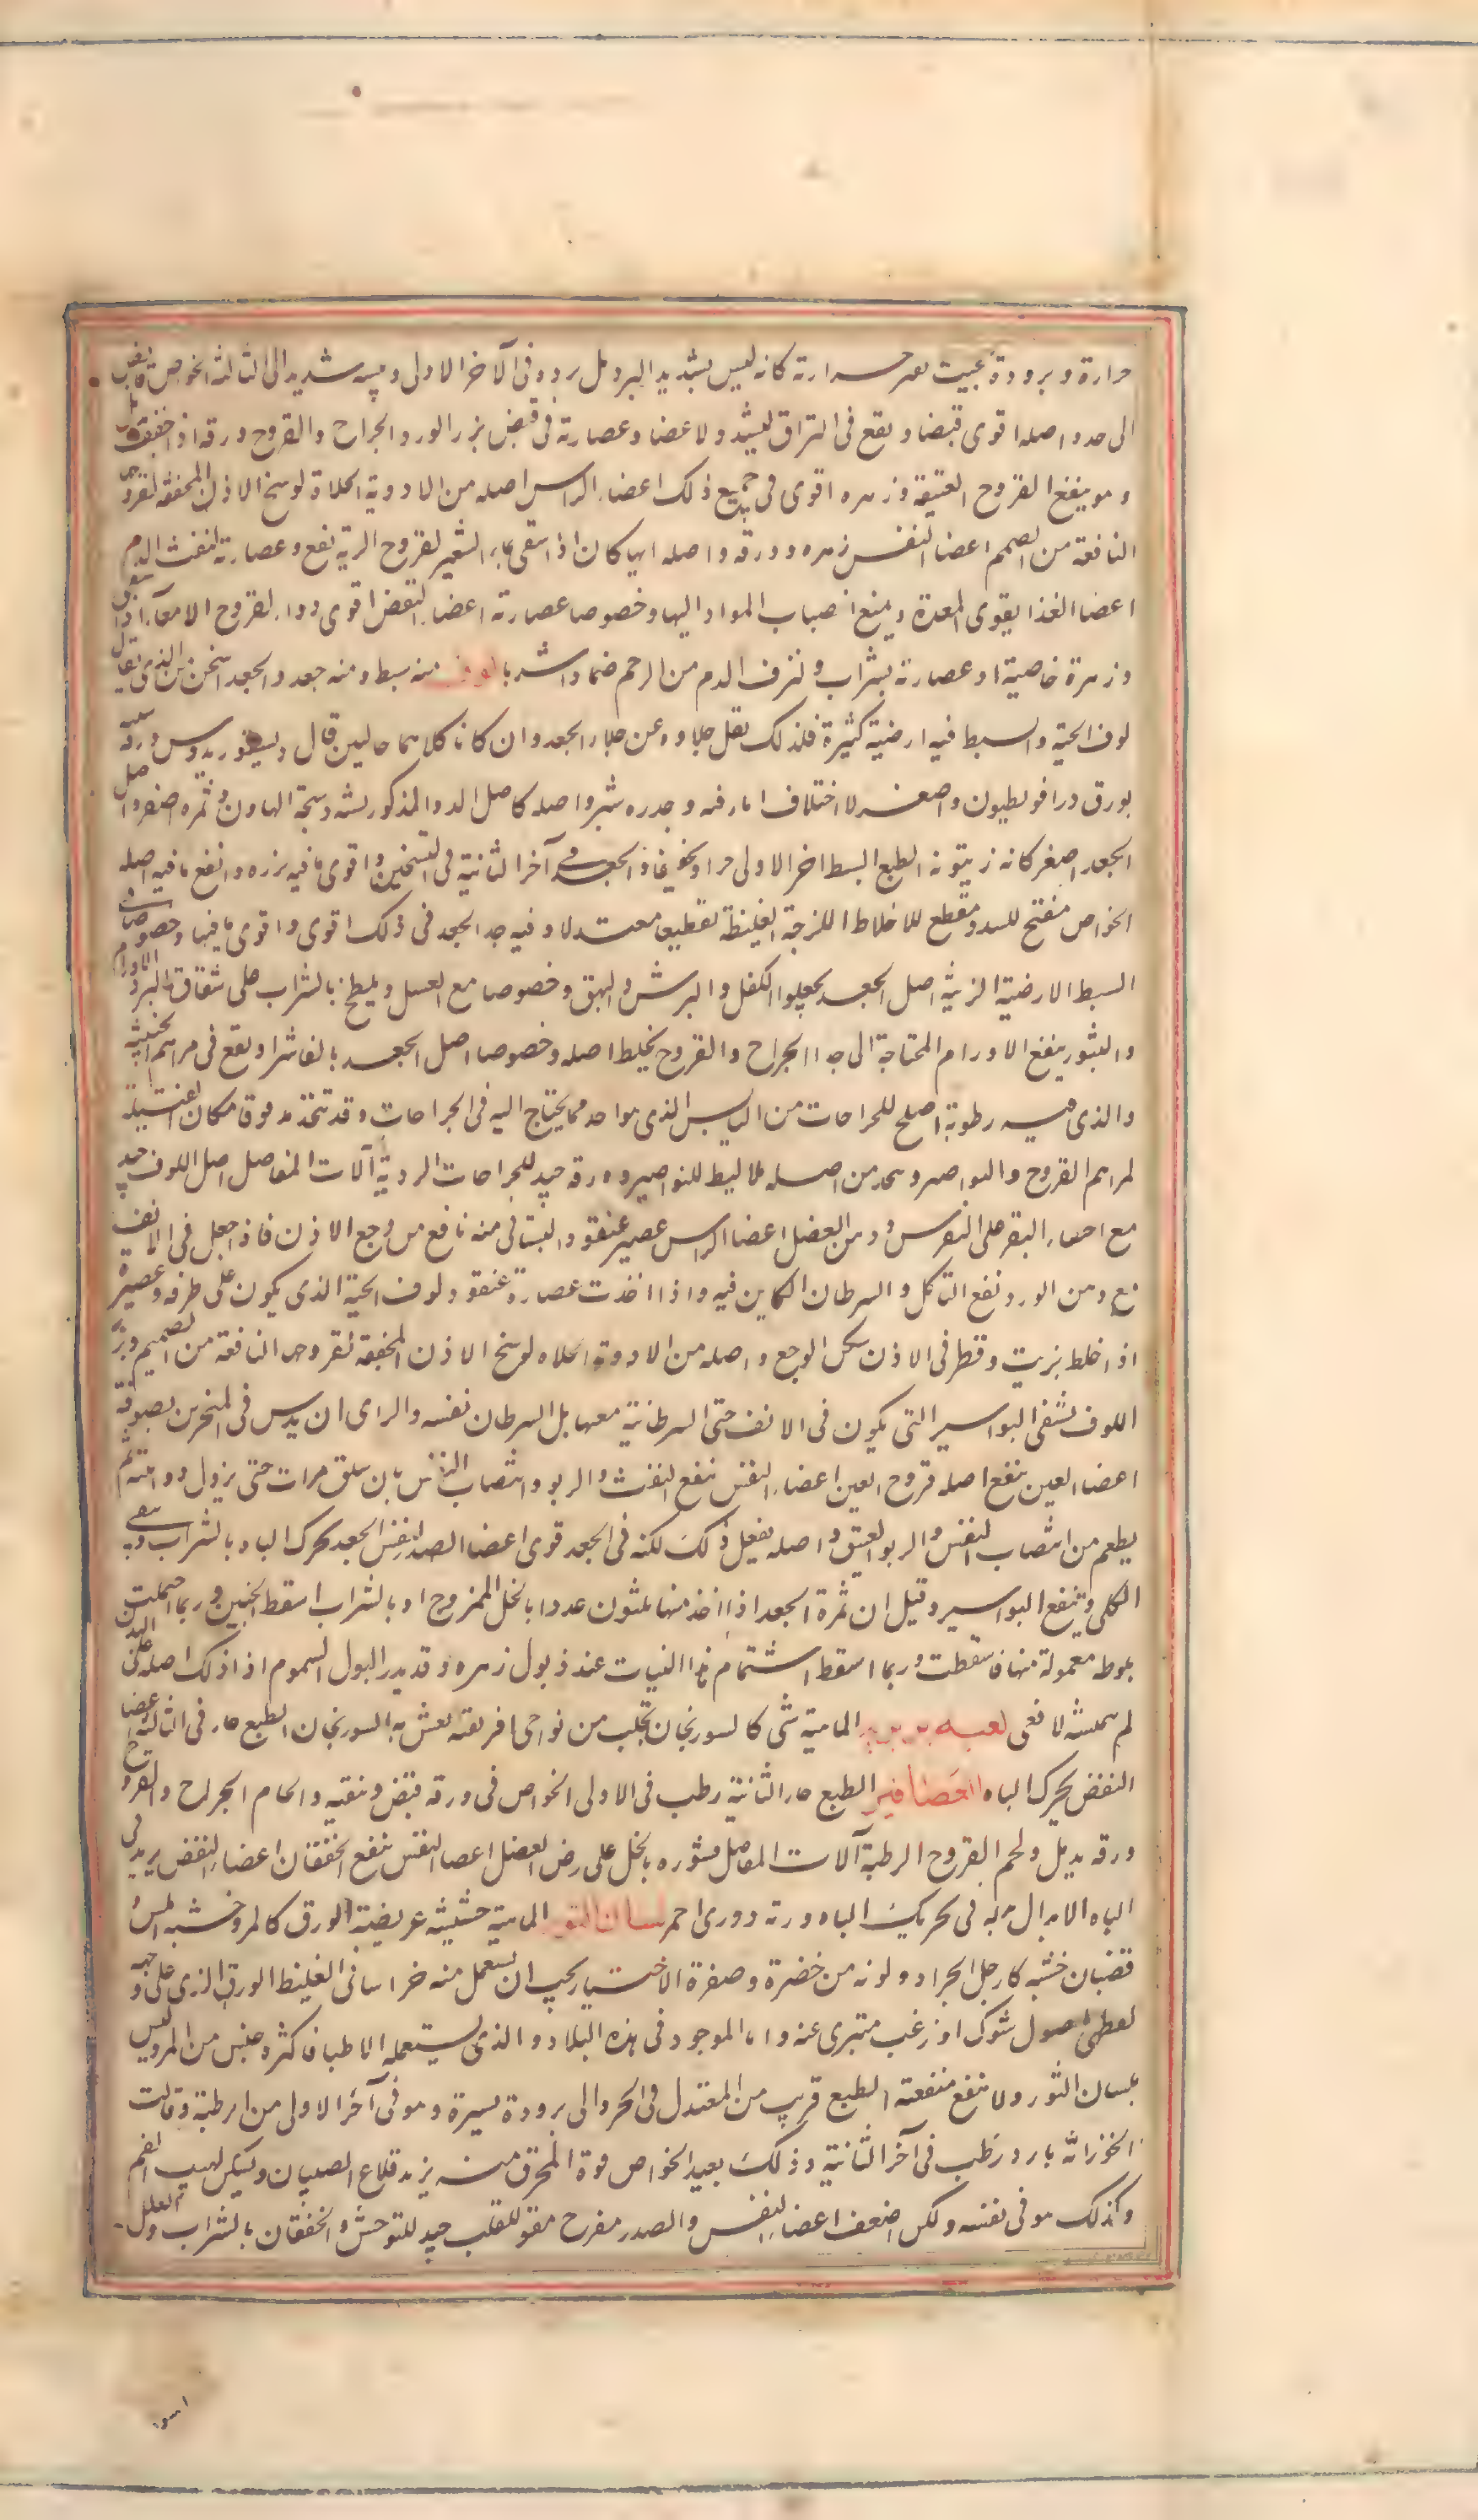 حرارة وبرودة بحيث حرارته كانه ليس بشديد البرد بل برده فى الآخر الاولى ويبسه شديد الى الثالثة الخواص قابض
الى حد واصله اقوى قبضا ويقع فى الترياق ليشد ولاعضا وعصارته فى قبض بزر الورد الجراح والقروح ورقه اذا جفف
وهو ينفع القروح العتيقة وزهره اقوى فى جميع ذلك اعضاء الراس اصله من الادوية الجلاة لوسخ الاذن المجففة لقروحها
النافعة من الصمم اعضا النفس زهره وورقه واصله ايها كان اذا سقى بماء الشعير لقروح الرية نفع وعصارته لنفث الدم
اعضا الغذا يقوى المعدة ويمنع انصباب المواد اليها وخصوصا عصارته اعضاء النفض اقوى دواء لقروح الامعآء اذا سقى
وزهرة خاصية او عصارته بشراب ولنزف الدم من الرحم ضمادا وشربا لوف منه سبط ومنه جعد والجعد اسخن من الذى يقال
لوف الحية والسبط فيه ارضية كثيرة فلذلك يقل جلاوه عن جلاء الجعد وان كانا كلاهما جاليين قال ديسقوريدوس ورقه
بورق دراقونطيون واصغر لا اختلاف اثار فيه وجدره شبر واصله كاصل الدوا المذكور يشبه دستجة الهاون وثمره اصفر واصل
الجعد اصغر كانه زيتونه الطبع البسط اخر الاولى حرا وتجفيفا والجعد فى آخر الثانية فى التسخين واقوى ما فيه بزره وانفع ما فيه اصله
الخواص مفتح للسدد ومقطع للاخلاط اللزجة الغليظة تقطيعا معتدلا وفيه جلا الجعد فى ذلك اقوى واقوى ما فيها وخصوصا فى
السبط الارضية الزينة اصل الجعد يجلوا الكلف والبرش والبهق وخصوصا مع العسل ويطبخ بالشراب على شقاق البرد الاورام
والبثور ينفع الاورام المحتاجة الى جلا الجراح والقروح يخلط اصله وخصوصا اصل الجعد بالفاشرا ويقع فى مراهم الخبيثة
والذى فيه رطوبة اصلح للجراحات من اليابس الذى هو احد مما يحتاج اليه فى الجراحات وقد تتخذ مدقوقا مكان الفتيلة
لمراهم القروح والنواصير وتتخذ من اصله بلاليط للنواصير وورقه جيد للجراحات الردية آلات المفاصل اصل اللوف جيد
مع اخثاء البقر على النقرس ووهن العضل اعضا الراس عصير عنقوده النباتى منه نافع من وجع الاذن فاذا جعل فى الانف
مع دهن الورد نفع التاكل والسرطان الكاين فيه واذا اخذت عصارة عنقود لوف الحية الذى يكون على طرفه وعصيره
اذا خلط بزيت وقطر فى الاذن سكن الوجع واصله من الادوية الجلاه لوسخ الاذن المجففة لقروحها النافعة من الصمم وبزر
اللوف يشفى البواسير التى يكون فى الانف حتى السرطانية معها بل السرطان نفسه والراى ان يدس فى المنخرين بصوفة
اعضا العين ينفع اصله قروح العين اعضاء النفس ينفع النفث والربو وانتصاب النفس بان يسلق مرات حتى يزول دوائيته ثم
يطعم من انتصاب النفس والربو العتيق واصله يفعل ذلك لكنه فى الجعد قوى اعضا الصدر النفض الجعد يحرك الباه بالشراب وينقى
الكلى وينفع البواسير وقيل ان ثمرة الجعد اذا اخذ منها ثلثون عددا بالخل الممزوج او بالشراب اسقط الجنين وربما احتملت
بلوطه معمولة منها فاسقطت وربما اسقط اشتمام هذا النبات عند ذبول زهره وقد يدر البول السموم اذا دلك اصله على البدن
لم ينهشه الافعى لعبه بربرية الماهية شى كالسورنجان يجلب من نواحى افريقيه يغش به السورنجان الطبع حار فى الثالثة اعضا
النفض يحرك الباه لسان العصافير الطبع حار الثانية رطب فى الاولى الخواص فى ورقه قبض وتنقيه والحام الجراح والقروح
ورقه يدمل ولحم القروح الرطبة آلات المفاصل قشوره بالخل على رض العضل اعضا النفس ينفع الخفقان اعضاء النفض يزيد فى
الباه الابدال بدله فى تحريك الباه وزنه دوزى احمر لسان الثور الماهية حشيشة عريضة الورق كالمرو خشنه الملمس
قضبان خشبه كارجل الجراد ولونه من خضرة وصفرة الاختيار يجب ان يستعمل منه خراسانى الغليظ الورق الذى على وجهه
نقط هى اصول شوك او زغب متبرى عنه واما الموجود فى هذه البلاد والذى يستعمله الاطبا فاكثره جنس من المرو ليس
بلسان الثور ولا تنفع منفعته الطبع قريب من المعتدل فى الحر والى برودة يسيرة وهو فى آخر الاولى من الرطبة وقالت
الخوز انه بارد رطب فى آخر الثانية وذلك بعيد الخواص قوة المحرق منه يزيد قلاع الصبيان وتسكين لهيب الفم
وكذلك هو فى نفسه ولكن اضعف اعضاء النفس والصدر مفرح مقو للقلب جيد للتوحش والخفقان بالشراب والعلل